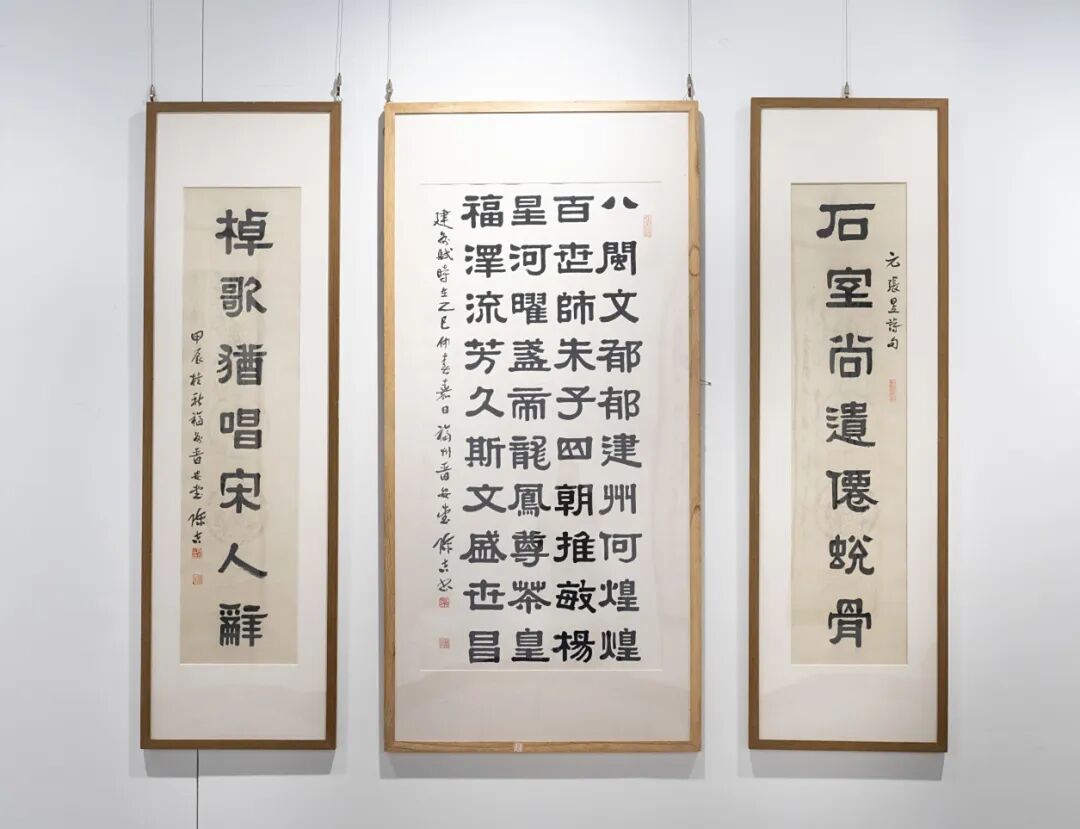 元張昱詩句
石室尚遺僊蛻骨
八閩文郁郁建州何煌煌
百世師朱子四朝推敏楊
星河曜盞帝龍鳳尊茶皇
福澤流芳久斯文盛世昌
建州賦時在乙巳仲春嘉日福州晉安堂陳吉書
棹歌猶唱宋人辭
甲辰桂秋福州晉安堂陳吉